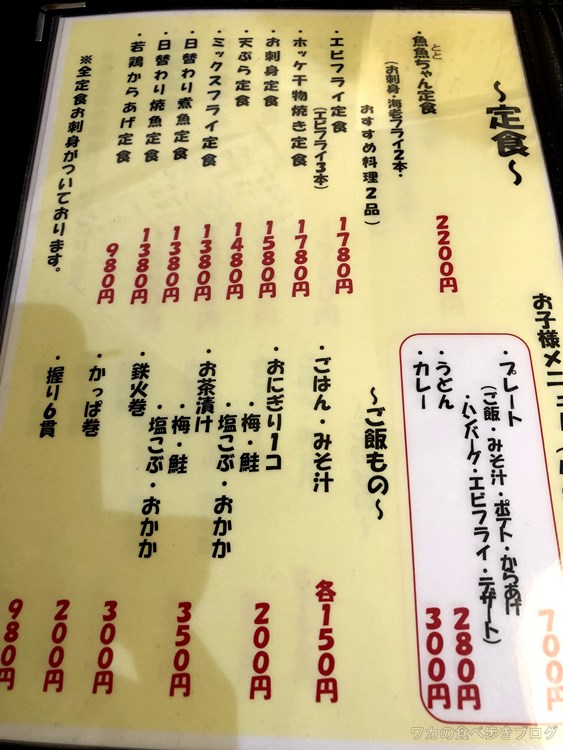 〜定食〜
・魚魚ちゃん定食 2200円
とと
(お刺身・海老フライ2本・
おすすめ料理2品)
・エビフライ定食 1780円
(エビフライ3本)
・ホッケ干物焼き定食 1780円
・お刺身定食 1580円
・天ぷら定食 1480円
・ミックスフライ定食 1380円
・日替わり煮魚定食 1380円
・日替わり焼魚定食 1380円
・若鶏からあげ定食 980円
※全定食お刺身がついております。
お子様メニュー
・プレート 700円
(ご飯・みそ汁・ポテト・からあげ
・ハンバーグ・エビフライ・デザート)
・うどん 280円
・カレー 300円
〜ご飯もの〜
・ごはん・みそ汁 各150円
・おにぎり1コ 200円
・梅・鮭
・塩こぶ・おかか
・お茶漬け 350円
・梅・鮭
・塩こぶ・おかか
・鉄火巻 300円
・かっぱ巻 200円
・握り6貫 980円
ワカの食べ歩きブログ